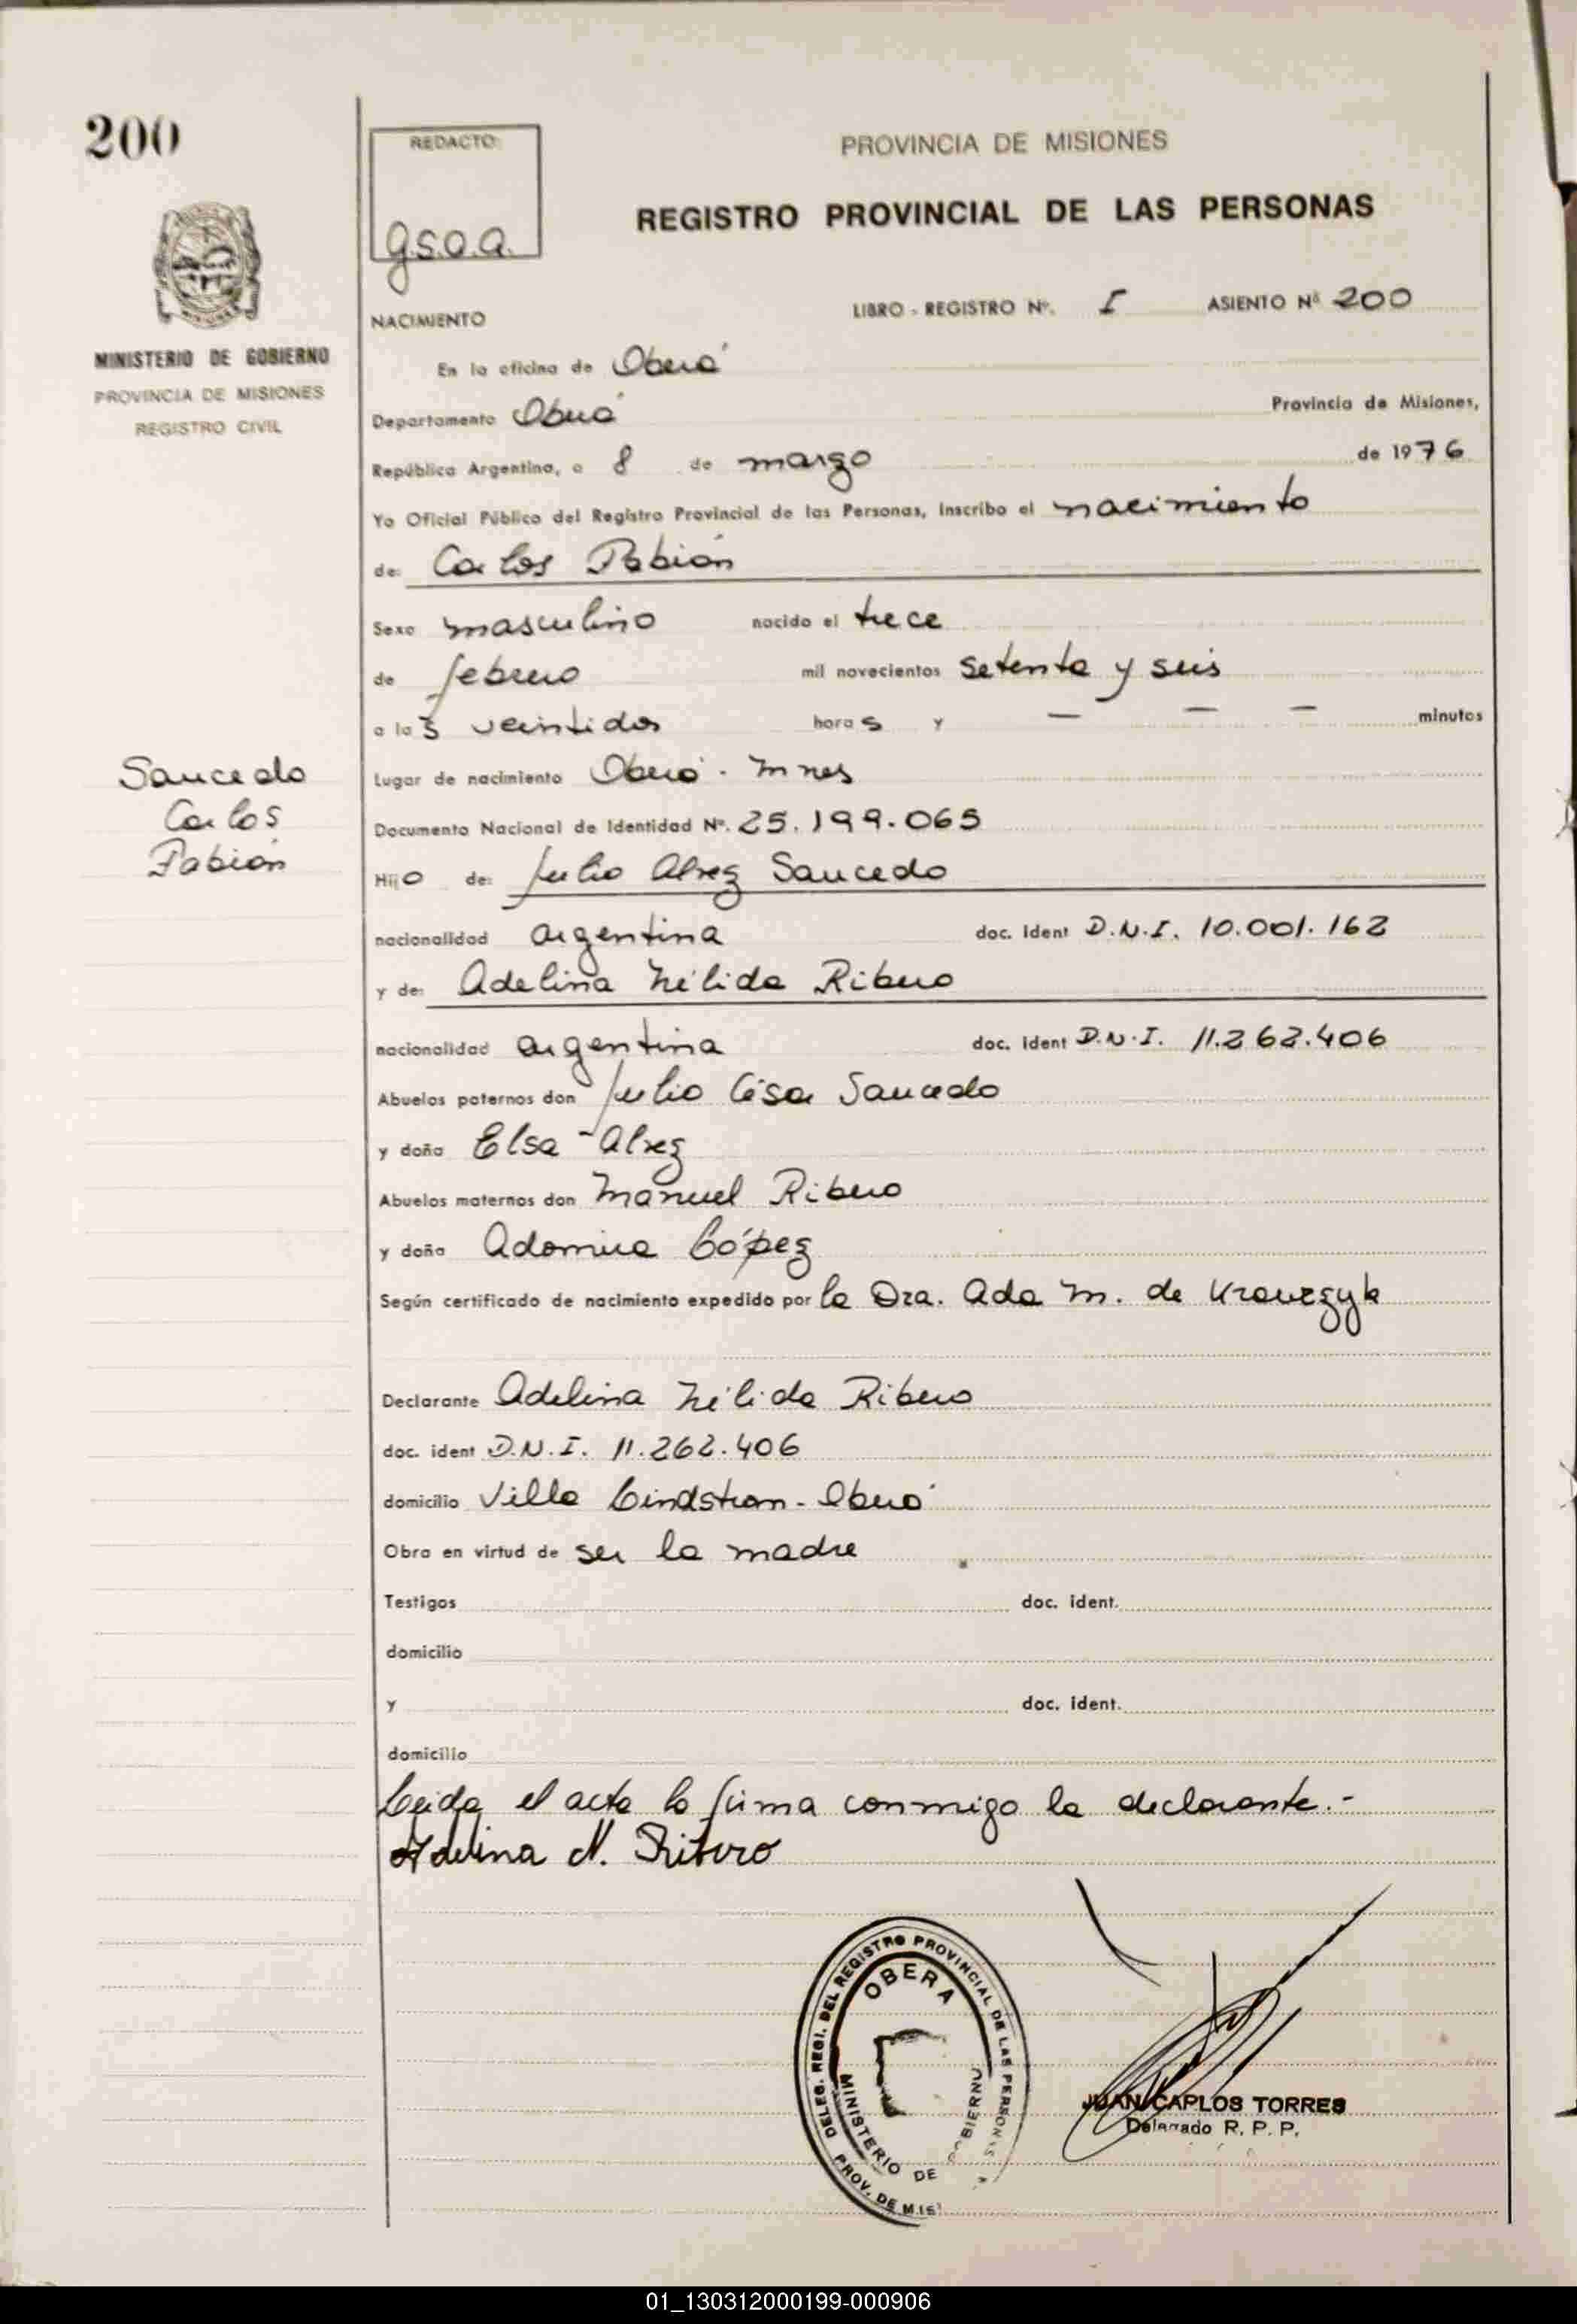 200
REDACTO:
g.s.o.a.
PROVINCIA DE MISIONES
REGISTRO PROVINCIAL DE LAS PERSONAS
MINISTERIO DE GOBIERNO
PROVINCIA DE MISIONES
REGISTRO CIVIL
NACIMIENTO
LIBRO - REGISTRO Nº. I ASIENTO Nº 200
En la oficina de Oberá
Departamento Oberá Provincia de Misiones,
República Argentina, a 8 de marzo de 1976
Yo Oficial Público del Registro Provincial de las Personas, inscribo el nacimiento
de: Carlos Fabián
Sexo masculino nacido el trece
de febrero mil novecientos setenta y seis
a las veintidos horas y — — — minutos
Saucedo
Carlos
Fabián
Lugar de nacimiento Oberá - Mnes
Documento Nacional de Identidad Nº. 25.199.065
Hijo de: Julio Alvez Saucedo
nacionalidad argentina doc. ident D.N.I. 10.001.162
y de: Adelina Nélida Ribero
nacionalidad argentina doc. ident D.N.I. 11.262.406
Abuelos paternos don Julio César Saucedo
y doña Elsa Alvez
Abuelos maternos don Manuel Ribero
y doña López
Según certificado de nacimiento expedido por la Dra. Ada M. de Krawczyk
Declarante Adelina Nélida Ribero
doc. ident D.N.I. 11.262.406
domicilio Villa Lindstrom - Oberá
Obra en virtud de ser la madre
Testigos doc. ident.
domicilio
y doc. ident.
domicilio
Leida el acta la firma conmigo la declarante.-
Adelina N. Ribero
DELEG. REGI. DEL REGISTRO PROVINCIAL DE LAS PERSONAS
OBERA
MINISTERIO DE GOBIERNO
PROV. DE MIS
JUAN CARLOS TORRES
Delegado R. P. P.
01_130312000199-000906